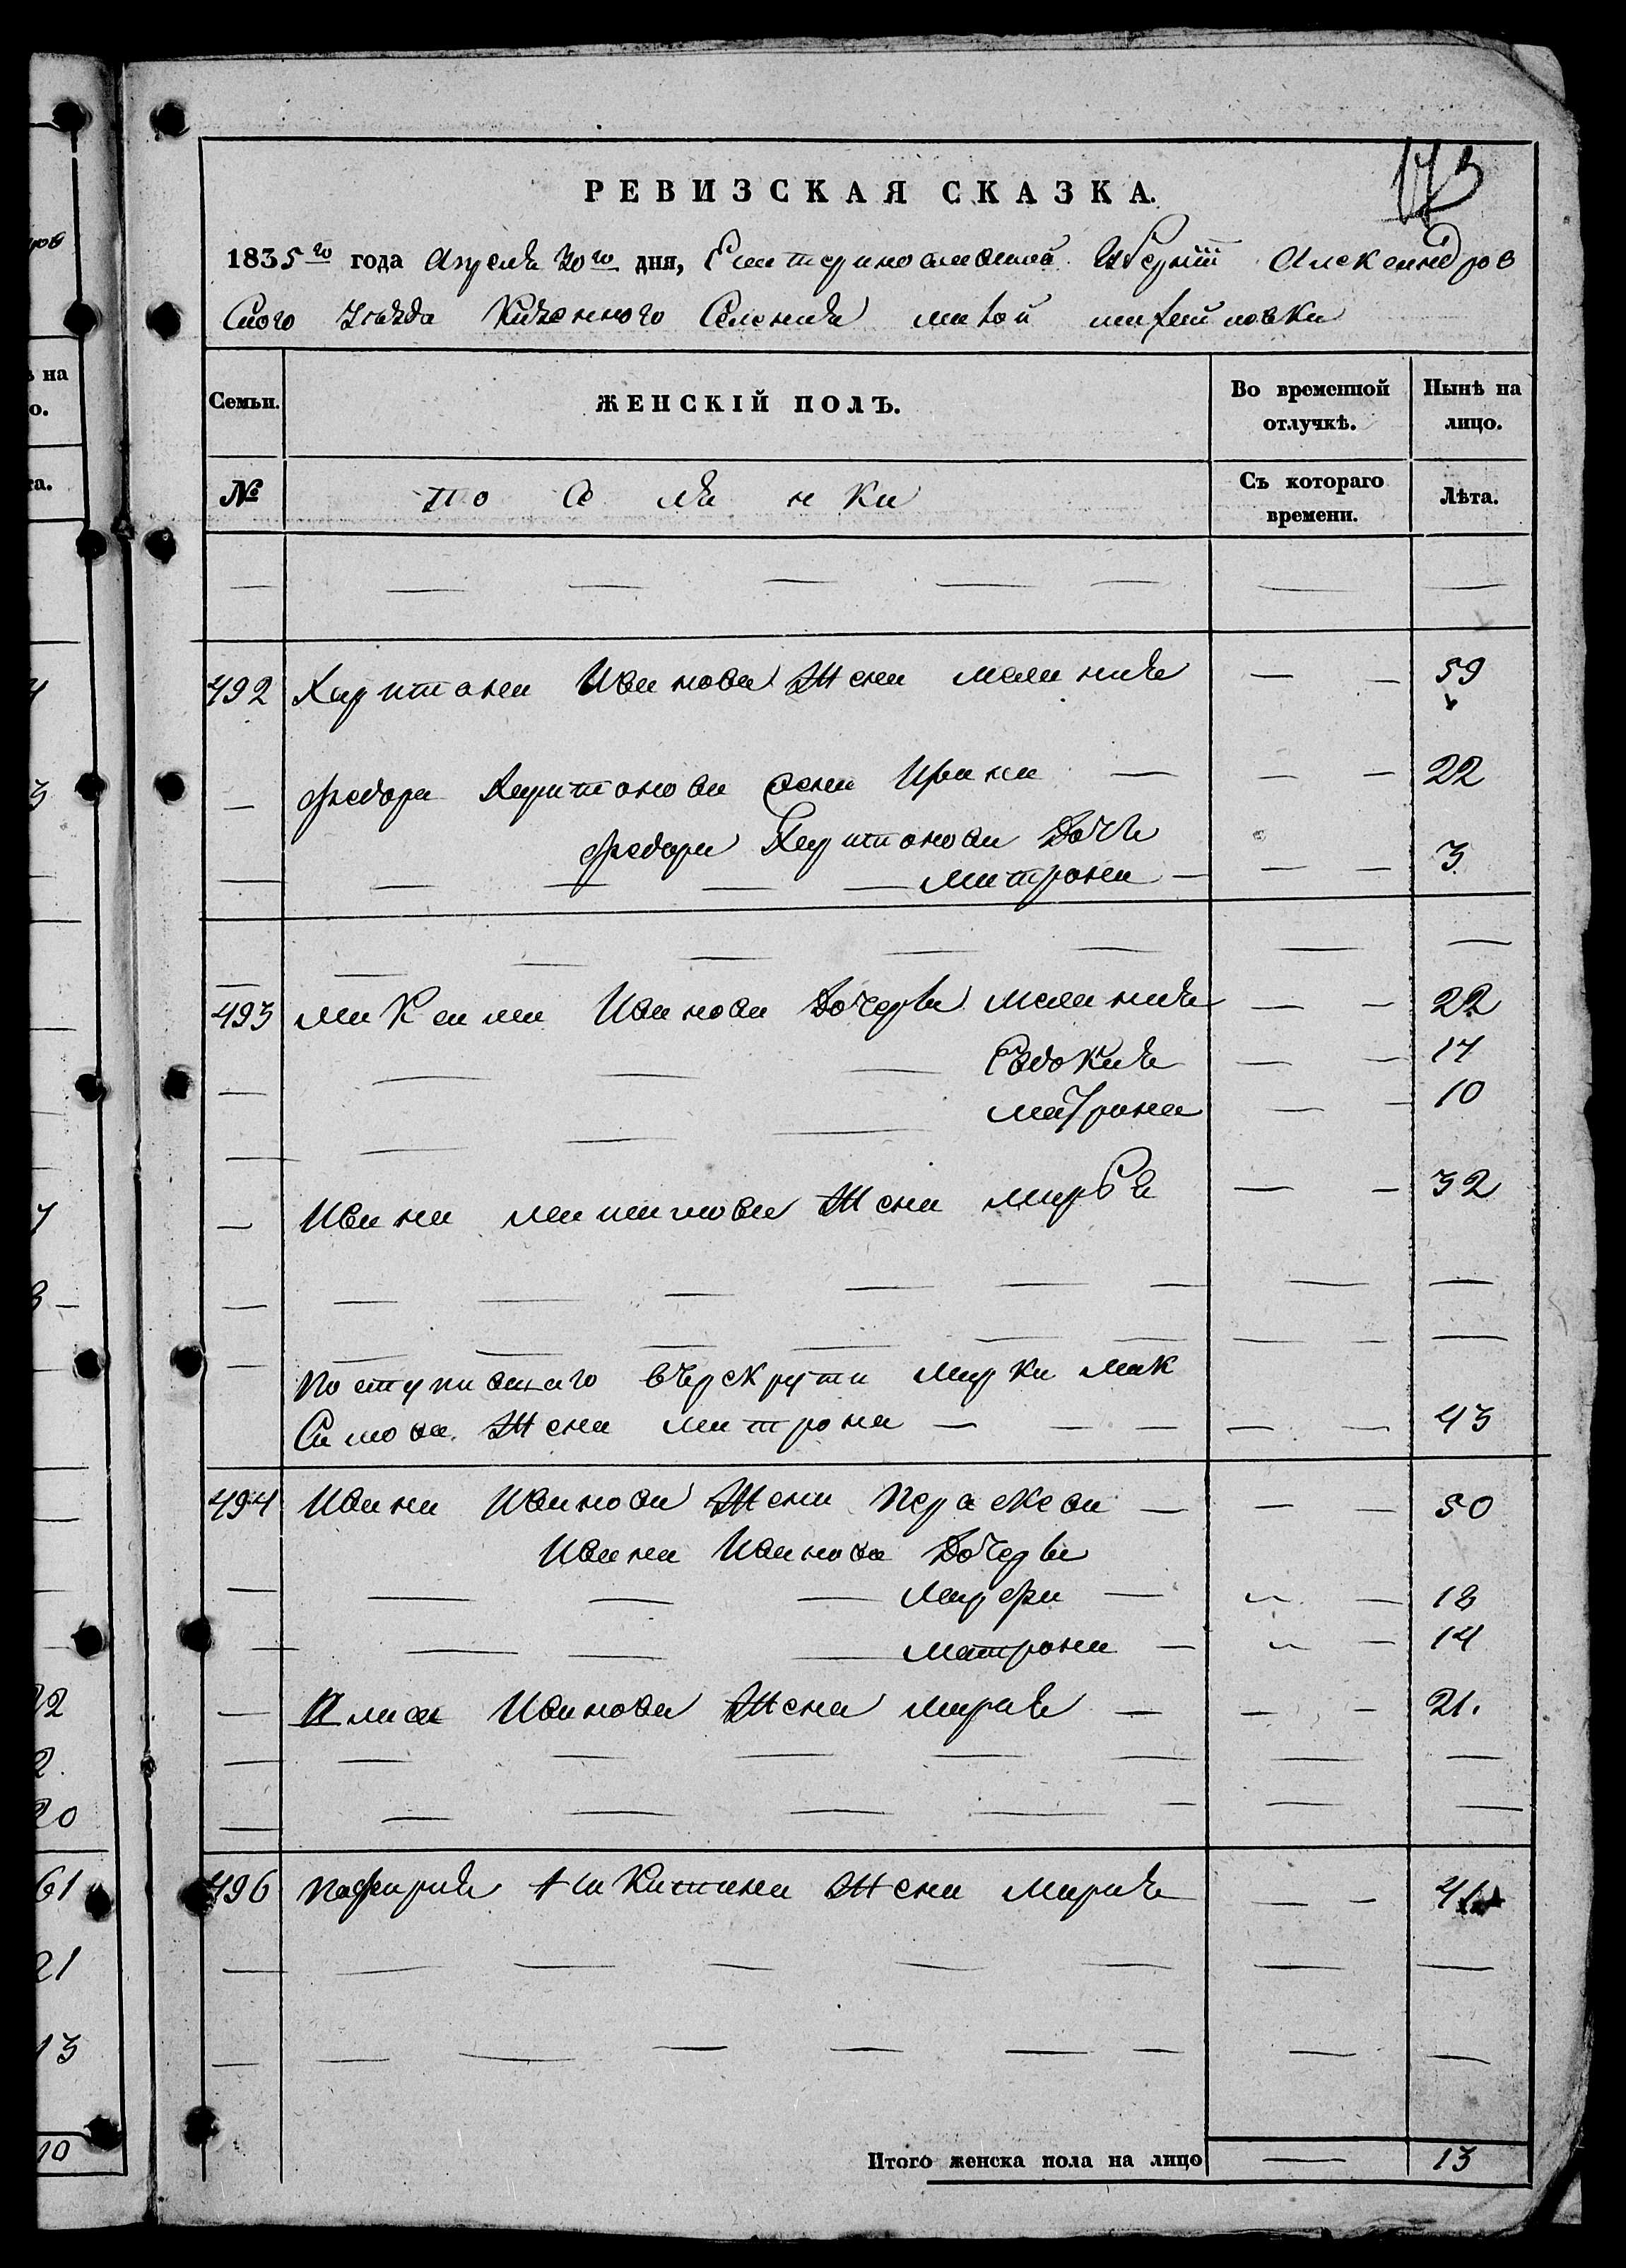 173
РЕВИЗСКАЯ СКАЗКА.
1835го года Апреля 30го дня, Екатеринославской Губернии Александров
ского Уезда Казенного Селения малой михайловки
Семьи. ЖЕНСКІЙ ПОЛЪ. Во временной отлучкѣ. Нынѣ на лицо.
№ поселянки Съ котораго времени. Лѣта.
492 Харитона Иванова Жена Мелания 59
Федора Харитонова жена Ирина 22
Федора Харитонова Дочь
Матрона 3
493 Максима Иванова Дочери Мелания 22
Евдокия 17
Матрона 10
Ивана Жена Марья 32
Поступившаго въ рекруты Марка Мак
симова Жена Матрона 43
494 Ивана Иванова Жена Пераскева 50
Ивана Иванова Дочери
Марфа 18
Матрона 14
Иванова Жена Мария 21.
496 Жена Мария 41
Итого женска пола на лицо 13